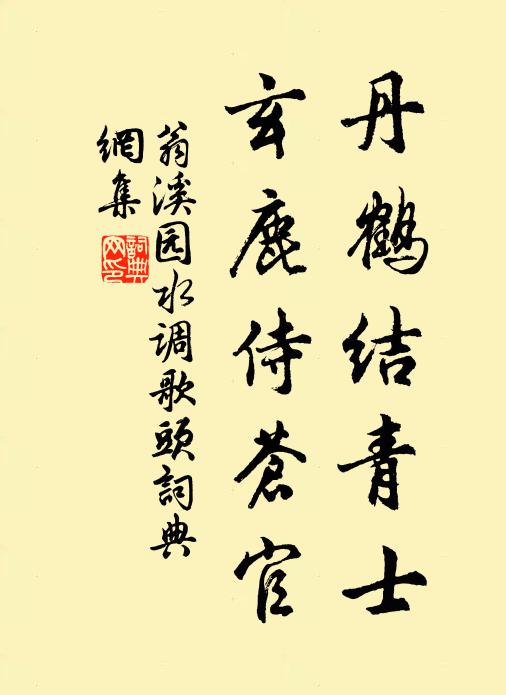 丹鹤结青士
玄鹿侍苍官
翁溪园水调歌头词典
網集
詞典网印